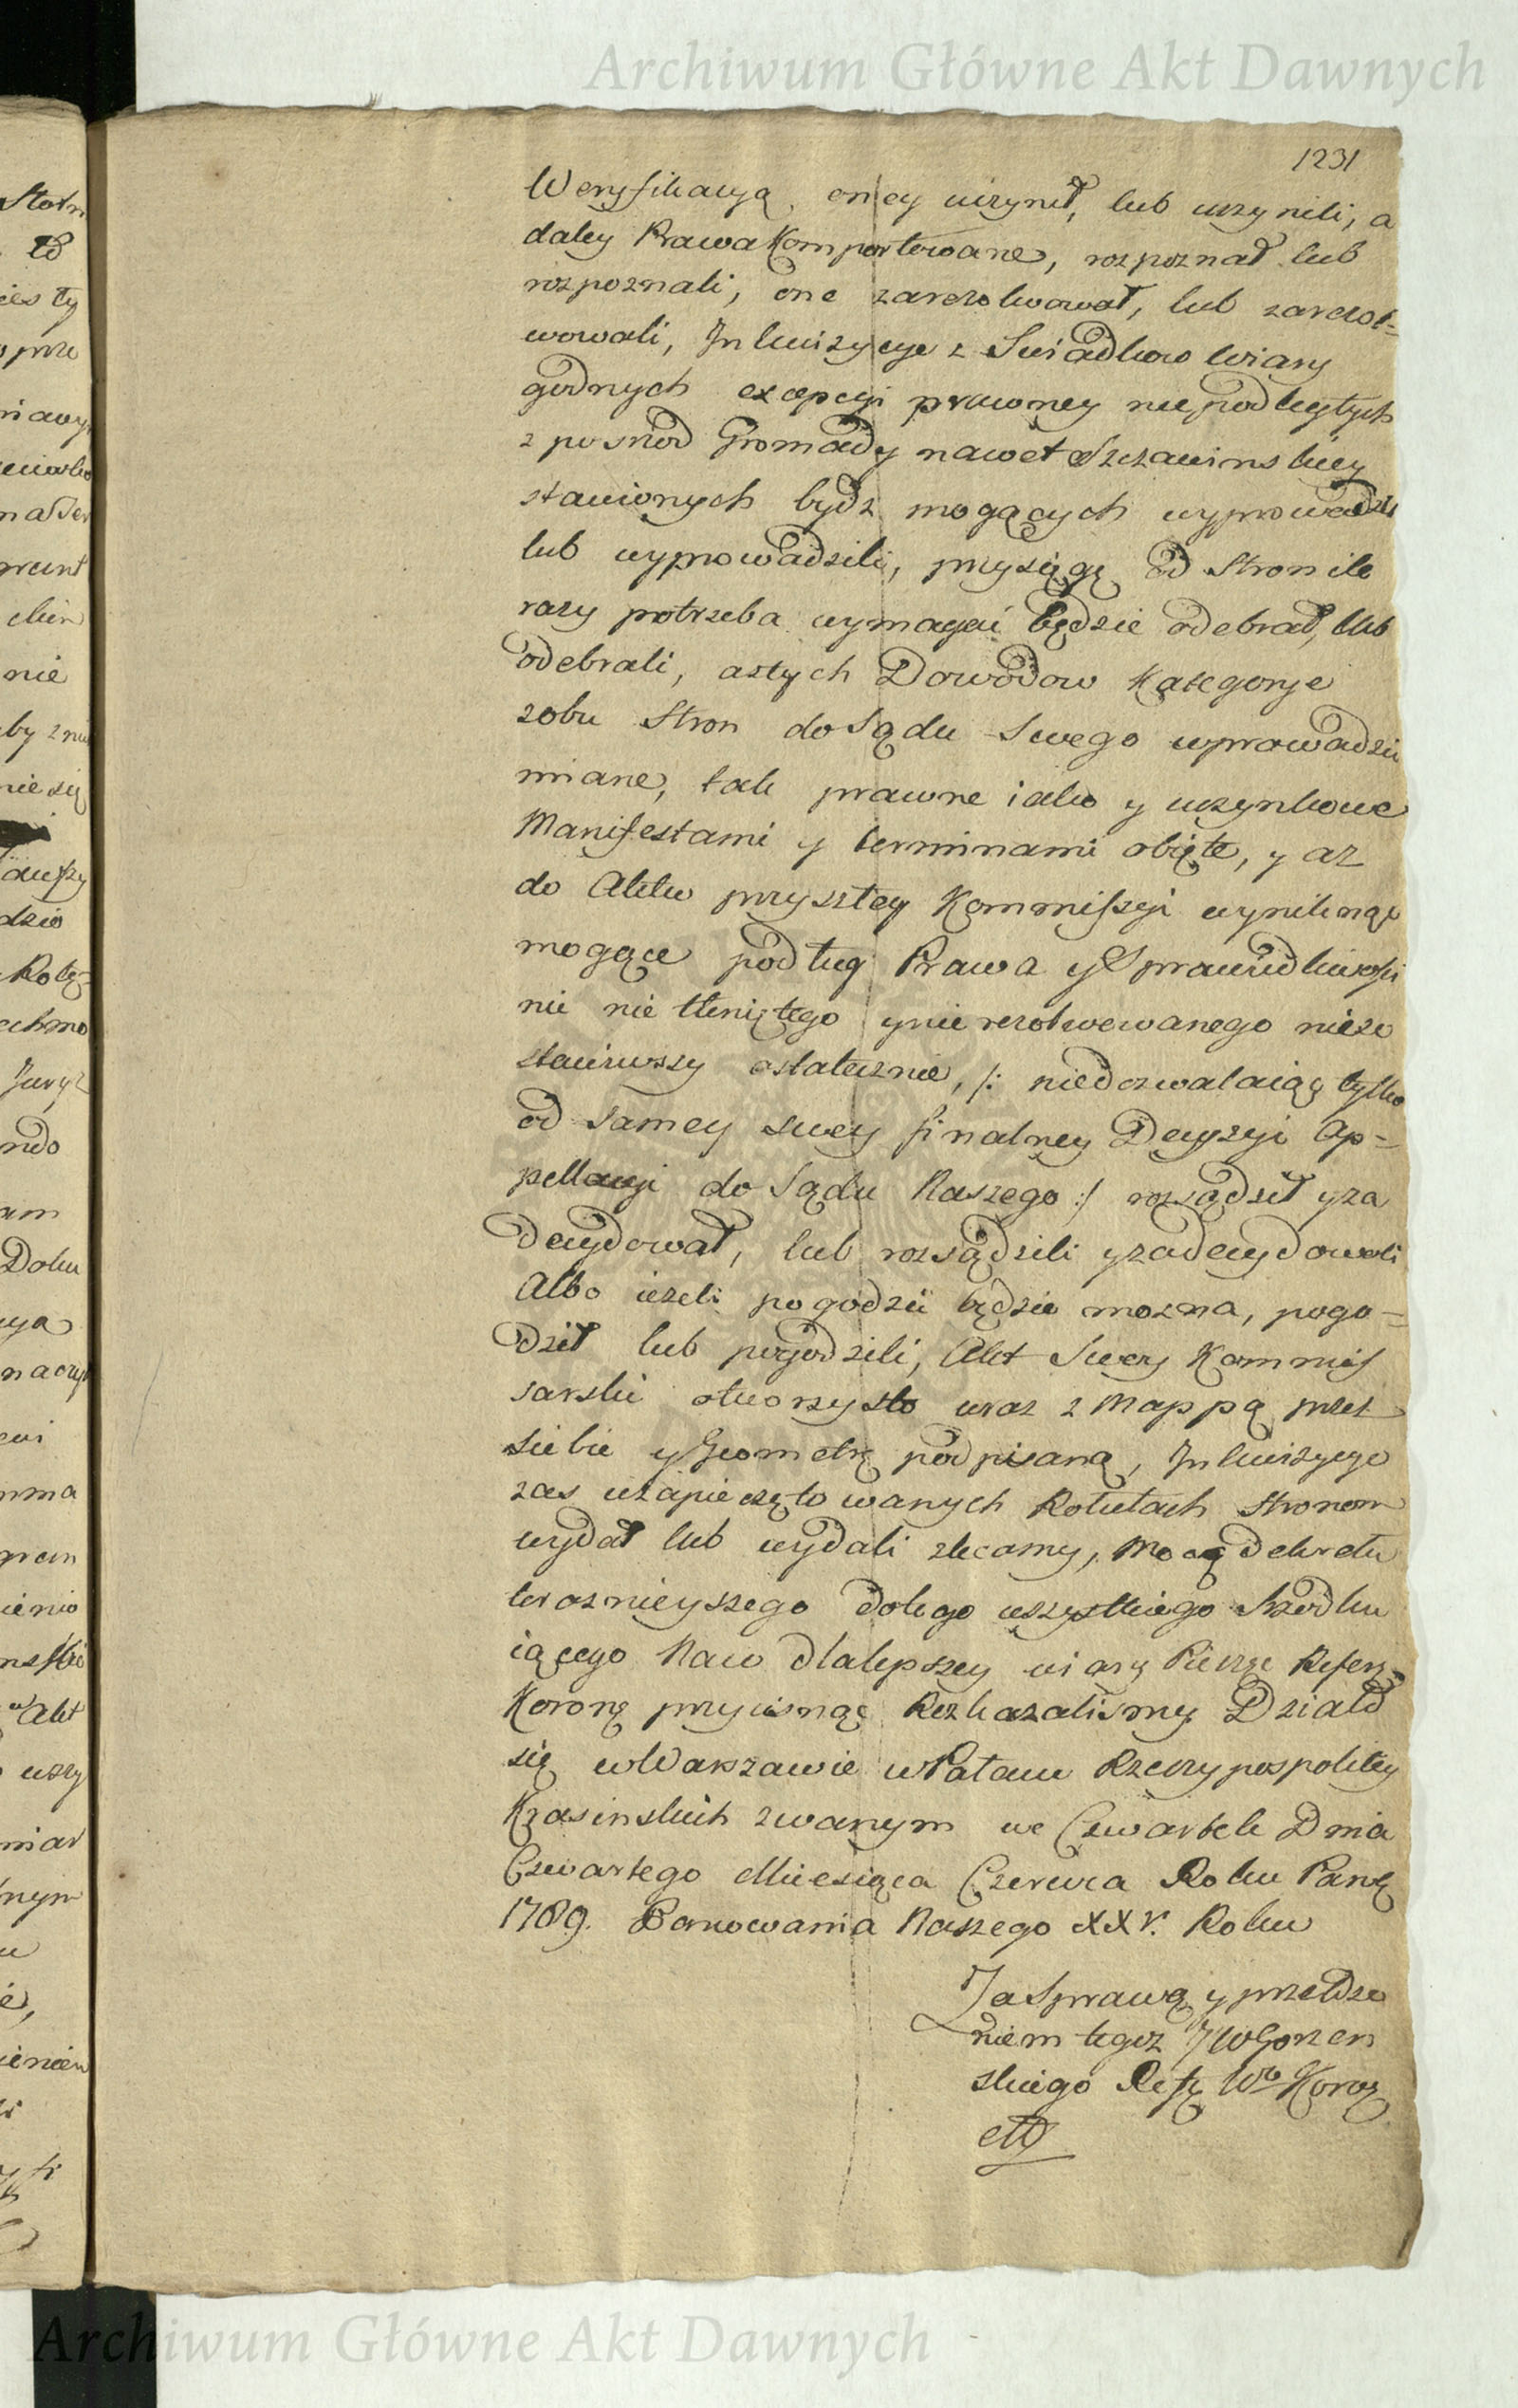 Archiwum Główne Akt Dawnych
1231
Weryfikacyą oney uczynił, lub uczynili, a
daley Prawa Komportowane, rozpoznał lub
rozpoznali, one zarezolwował, lub zarezol=
wowali, Inkwizycye z Swiadkow wiary
godnych excepcyi prawney niepodległych
z posrzod Gromady nawet Szczawinskiey
stawionych bydz mogących wyprowadził
lub wyprowadzili, przysięgę od Stron ile
razy potrzeba wymagać będzie odebrał, lub
odebrali, aztych Dowodow Kategorye
zobu Stron do Sądu Swego wprowadzić
miane, tak prawne iako y uczynkowe
Manifestami y terminami obięte, y az
do Aktu przyszłey Kommissyi wyniknąć
mogące podług Prawa y Sprawiedliwości
nic nie tkniętego ynierezolwowanego nieze
stawiwszy ostatecznie, /: niedozwalaiąc tylko
od Samey swey finalney Decyzyi Ap=
pellacyi do Sądu Naszego :/ rozsądził yza
decydował, lub rozsądzili yzadecydowali
Albo iezeli pogodzić będzie mozna, pogo=
dził lub pogodzili, Akt Swey Kommis
sarski otworzysto wraz z Mappą przez
siebie y Geometrę podpisaną, Inkwizycye
zas wzapieczętowanych Rotułach Stronom
wydał lub wydali zlecamy, Mocą dekretu
teraznieyszego dotego wszystkiego
iącego Naco dlalepszey wiary Pieczęć
Koronę przycisnąć Rozkazalismy Działo
się wWarszawie wPałacu Rzeczypospolitey
Krasinskich zwanym we Czwartek Dnia
Czwartego Miesiąca Czerwca Roku Pang
1789. Panowania Naszego XXV. Roku
Za Sprawą y przełoze
niem tegoz JW Gorzen
skiego Refę Wo Koroę
Archiwum Główne Akt Dawnych